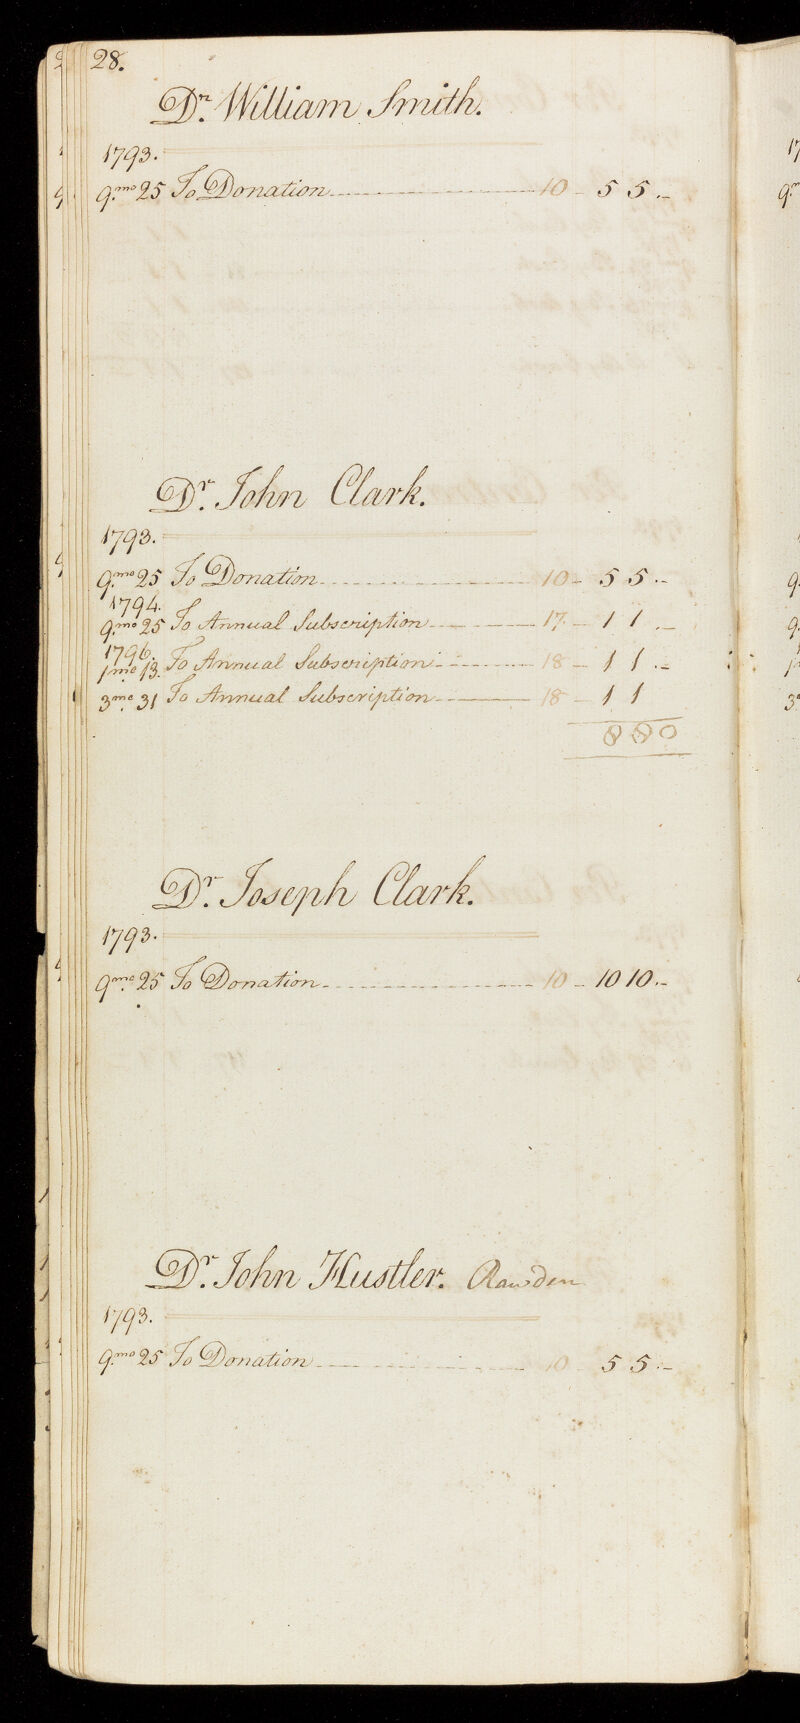 28.
Dr. William Smith.
1793.
9.mo 25 To Donation 10 - 5 5 -
Dr. John Clark.
1793.
9.mo 25 To Donation 10 - 5 5 -
1794.
9.mo 25 To Annual Subscription 17 - 1 1 -
1796.
1mo 13. To Annual Subscription 18 - 1 1 -
3mo 31 To Annual Subscription 18 - 1 1
8 8 0
Dr. Joseph Clark.
1793.
9mo. 25 To Donation 10 - 10 10 -
Dr. John Hustler. Rawden
1793.
9.mo 25 To Donation 10 - 5 5 -